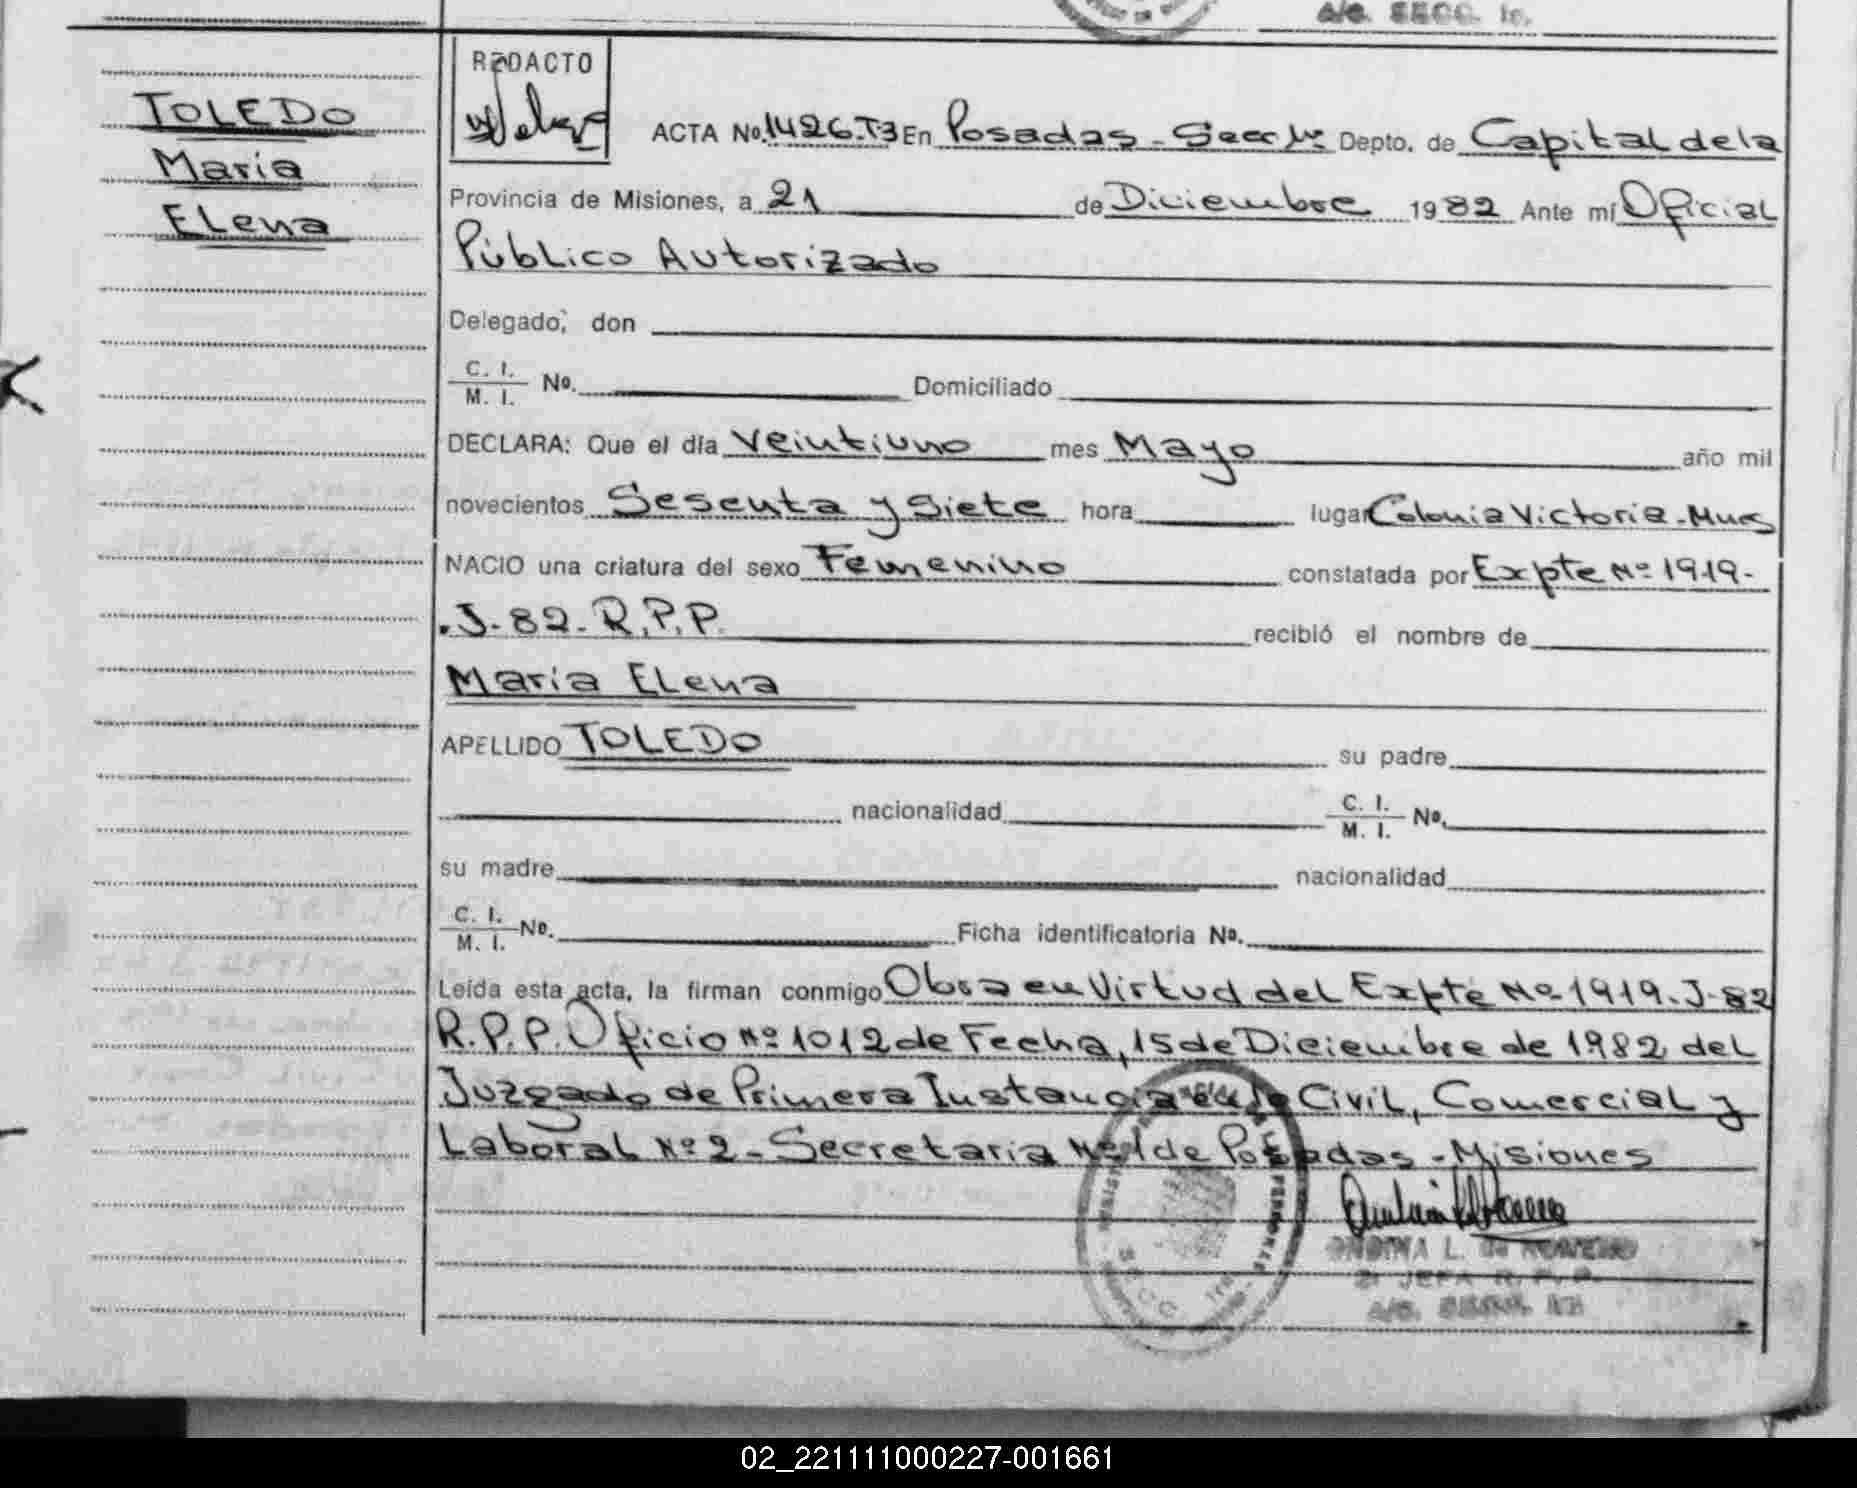 A/c. SECC. 1a.
REDACTO
TOLEDO
Maria
ELena
ACTA No. 1426.T3 En Posadas - Secc 1a Depto. de Capital de la
Provincia de Misiones, a 21 de Diciembre 1982 Ante mí Oficial
Público Autorizado
Delegado, don
C. I.
M. I. No. Domiciliado
DECLARA: Que el día Veintiuno mes Mayo año mil
novecientos Sesenta y Siete hora lugar Colonia Victoria - Mnes
NACIO una criatura del sexo Femenino constatada por Expte Nº 1919-
.J-82-R.P.P. recibió el nombre de
Maria ELena
APELLIDO TOLEDO su padre
nacionalidad C. I.
M. I. No.
su madre nacionalidad
C. I.
M. I. No. Ficha identificatoria No.
Leída esta acta, la firman conmigo Obra en Virtud del Expte Nº 1919. J-82
R.P.P. Oficio Nº 1012 de Fecha, 15 de Diciembre de 1982 del
Juzgado de Primera Instancia en lo Civil, Comercial y
Laboral Nº 2 - Secretaria Nº 1 de Posadas - Misiones
ONDINA L. de
JEFA R. P. P.
02_221111000227-001661